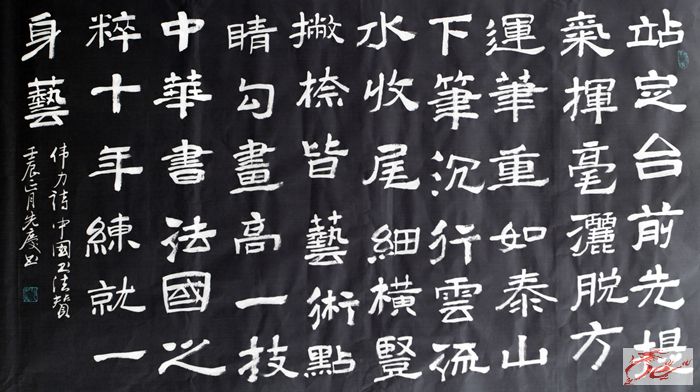 站定台前先提
氣揮毫灑脫方
運筆重如泰山
下筆沉行雲流
水收尾細橫豎
撇捺皆藝術點
睛勾畫高一技
中華書法國之
粹十年練就一
身藝
伟力詩中國书法贊
壬辰正月先慶书